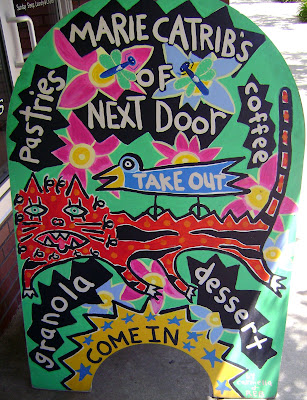 MARIE CATRIB'S
OF
NEXT DOOR
pastries
coffee
TAKE OUT
granola
dessert
COME IN